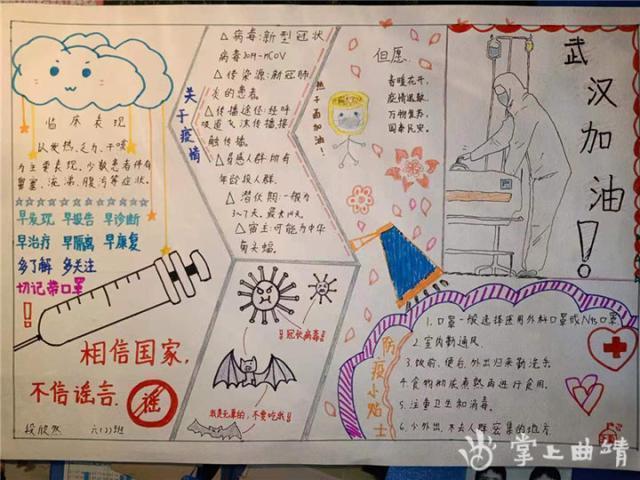 临床表现
以发热、乏力、干咳
为主要表现。少数患者伴有
鼻塞、流涕、腹泻等症状。
早发现 早报告 早诊断
早治疗 早隔离 早康复
多了解 多关注
切记带口罩
!
相信国家,
不信谣言.
谣
段欣然 六(1)班
关于疫情
△病毒:新型冠状
病毒2019-nCOV
△传染源:新冠肺
炎的患者.
△传播途径:经呼
吸道飞沫传播,接
触传播.
△易感人群:所有
年龄段人群.
△潜伏期:一般为
3~7天,最长14天
△宿主:可能为中华
菊头蝠.
冠状病毒!
我是无辜的,不要吃我!
热干面加油!
但愿
春暖花开,
疫情退散,
万物复苏,
国泰民安.
武汉加油!
防疫小贴士
1.口罩一般选择医用外科口罩或N95口罩
2.室内勤通风.
3.饭前、便后、外出归来勤洗手.
4.食物彻底煮熟再进行食用.
5.注重卫生和消毒.
6.少外出,不去人群密集的地方
掌上曲靖